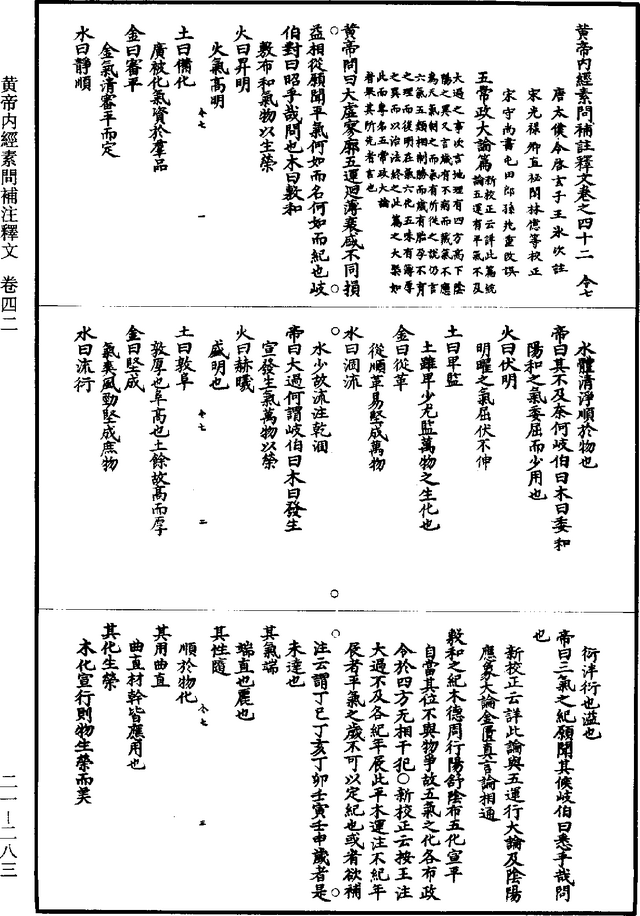 黄帝内經素問補注釋文 卷四二
二一—二八三
黄帝内經素問補註釋文卷之四十二 令七
唐太僕令啓玄子王氷次註
宋光祿卿直祕閣林億等校正
宋守尚書屯田郎孫兆重改誤
五常政大論篇新校正云詳此篇統論五運有平氣不及
大過之事次言地理有四方高下陰
陽之異又言歲有不病而藏氣不應
爲天氣制之而氣有所從之說仍言
六氣五類相制勝而歲有胎孕不育
之理而後明在泉六化五味有薄厚
之異而以治法終之此篇之大槩如
此而專名五常政大論
者舉其所先者言也
黄帝問曰太虛寥廓五運迴薄衰盛不同損
益相從願聞平氣何如而名何如而紀也岐
伯對曰昭乎哉問也木曰敷和
敷布和氣物以生榮
火曰昇明
火氣高明
土曰備化
廣被化氣資於羣品
金曰審平
金氣清審平而定
水曰靜順
令七 一
水體清淨順於物也
帝曰其不及奈何岐伯曰木曰委和
陽和之氣委屈而少用也
火曰伏明
明曜之氣屈伏不伸
土曰卑監
土雖卑少尤監萬物之生化也
金曰從革
從順革易堅成萬物
水曰涸流
水少故流注乾涸
帝曰太過何謂岐伯曰木曰發生
宣發生氣萬物以榮
火曰赫曦
盛明也
土曰敦阜
敦厚也阜高也土餘故高而厚
金曰堅成
氣爽風勁堅成庶物
水曰流衍
令七 二
衍泮衍也溢也
帝曰三氣之紀願聞其候岐伯曰悉乎哉問
也
新校正云詳此論與五運行大論及陰陽
應象大論金匱真言論相通
敷和之紀木德周行陽舒陰布五化宣平
自當其位不與物爭故五氣之化各布政
令於四方无相干犯○新校正云按王注
太過不及各紀年辰此平木運注不紀年
辰者平氣之歲不可以定紀也或者欲補
注云謂丁巳丁亥丁卯壬寅壬申歲者是
未達也
其氣端
端直也麗也
其性隨
順於物化
其用曲直
曲直材幹皆應用也
其化生榮
木化宣行則物生榮而美
令七 三